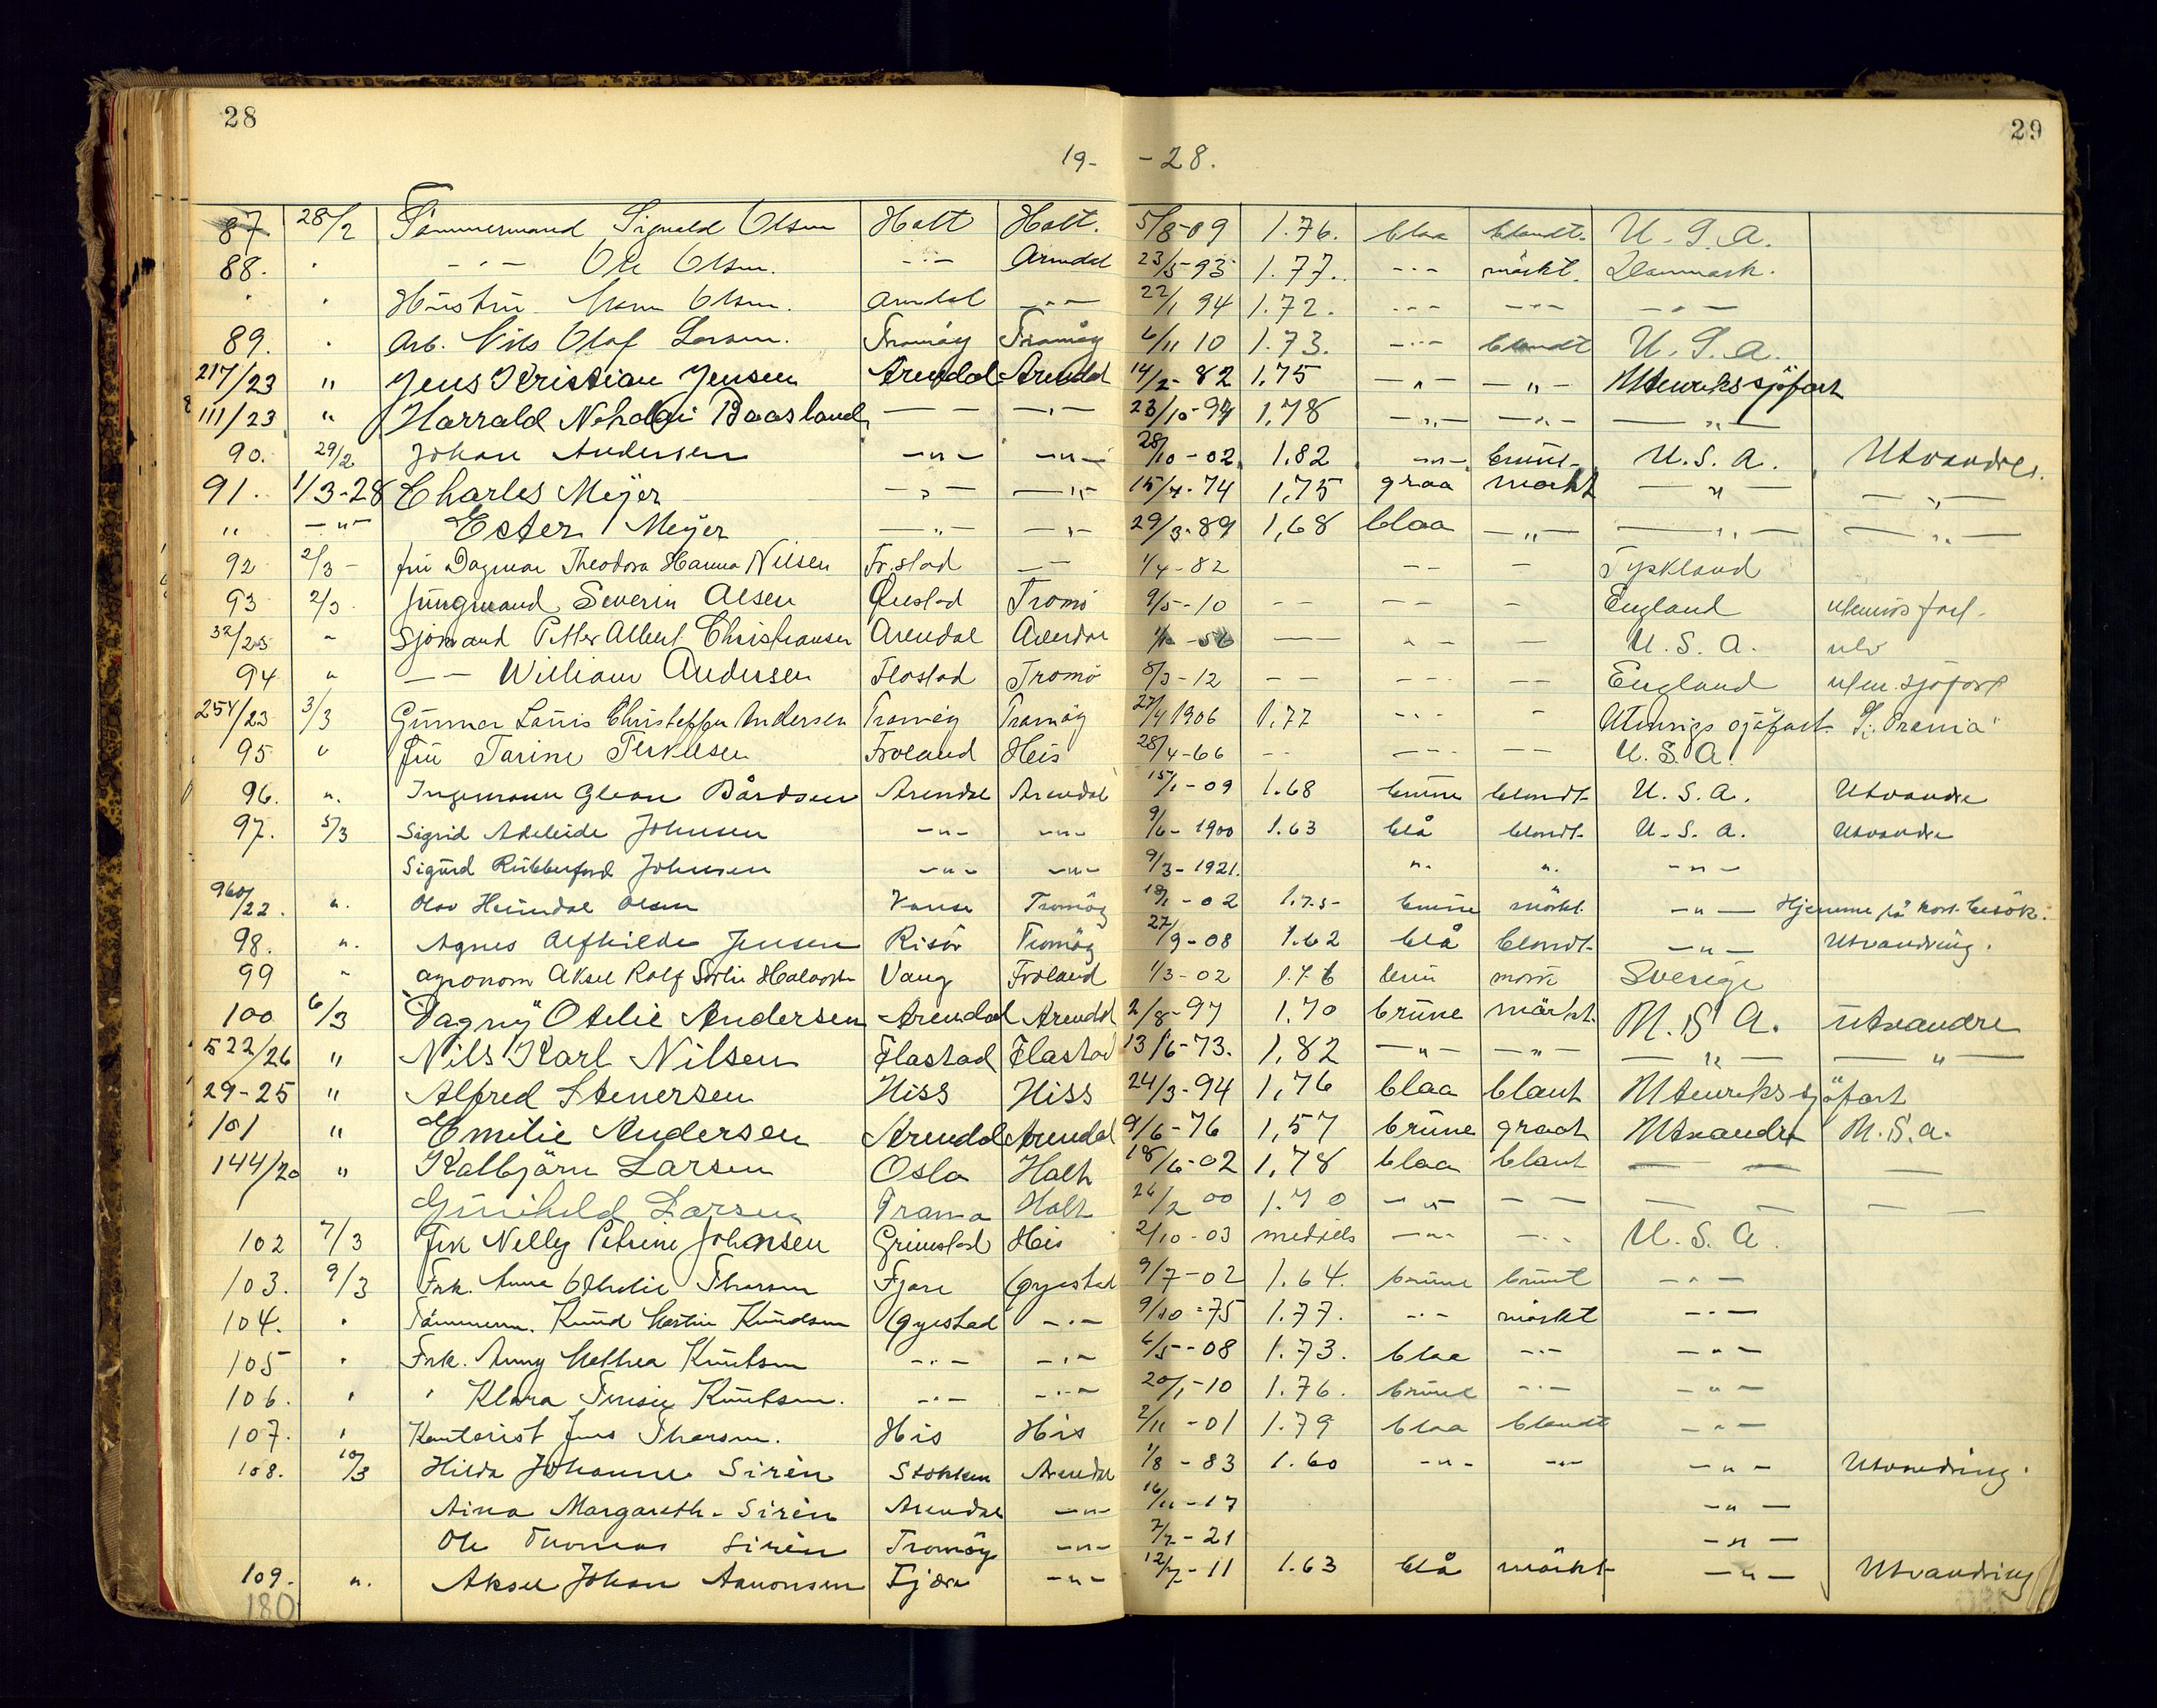 28
29
19- -28.
87 28/2 Tömmermand Sigvald Olsen Holt Holt. 5/8-09 1.76. blaa blondt. U.S.A.
88. " -"- Ole Olsen. -"- Arendal 23/5-93 1.77. -"- mörkt. Danmark.
" " Hustru Olsen. Arendal -"- 22/1 94 1.72. -"- -"- -"-
89. " Arb. Nils Olaf Larsen. Tromöy Tromöy 6/11 10 1.73. -"- blondt U.S.A.
217/23 " Jens Kristian Jensen Arendal Arendal 14/2-82 1,75 -"- -"- Utenrikssjöfart
111/23 " Harrald Nikolai Baasland -- -"- 23/10-94 1,78 -"- -"- -"-
90. 29/2 Johan Andersen -"- -"- 28/10-02. 1.82 -"- brune- U.S.A. Utvandre.
91. 1/3-28 Charles Meyer -"- -"- 15/7-74 1,75 graa mörkt -"- -"-
" -"- Ester Meyer -"- -"- 29/3-89 1,68 blaa -"- -"- -"-
92 2/3- fru Dagmar Theodora Hanna Nilsen Fr.stad -- 1/4-82 -- - Tyskland
93 2/3. Jungmand Severin Olsen Öiestad Tromö 9/5-10 -- -- - England utenriks fart-
32/25 " Sjömand Petter Albert Christiansen Arendal Arendal -56 -- -- - U.S.A. utv
94 " -- William Andersen Flostad Tromö 8/3-12 -- -- -- England uten. sjöfart
254/23 3/3 Gunnar Louis Christoffer Andersen Tromöy Tromöy 27/4 1906 1,77 -- - Utenrigs sjöfart "Prania"
95 " fru Tarine Terkelsen Froland His 28/4-66 -- -- -- U.S.A.
96. ". Ingemann Glean Bårdsen Arendal Arendal 15/1-09 1.68 brune blondt- U.S.A. Utvandre
97. 5/3 Sigrid Adeleide Johnsen -"- -"- 9/6-1900 1.63 blå blondt- U.S.A. Utvandre
Sigurd Rubberford Johnsen -"- -"- 9/3-1921. ". ". -"-
960/22. ". Olav Heimdal Olsen Vanse Tromöy 18/1-02 1.75- brune mörkt. -"- Hjemme på kort besök.
98. ". Agnes Alfhilde Jensen Risör Tromöy 27/9-08 1.62 blå blondt- -"- Utvandring.
99 " agronom Aksel Rolf Vang Froland 1/3-02 1.76 brun mörk Sverige
100 6/3 "Dagny" Otelie Andersen Arendal Arendal 2/8-97 1,70 brune mörkt. U.S.A. Utvandre
522/26 " Nils Karl Nilsen Flastad Flastad 13/6-73. 1,82 -"- -"- -"- -"-
29-25 " Alfred Stenersen Hiss Hiss 24/3-94 1,76 blaa blant Utenrikssjöfart
101 " Emilie Andersen Arendal Arendal 9/6-76 1,57 brune graat Utvandre U.S.a.
144/20 " Kolbjörn Larsen Oslo Holt 18/6-02 1,78 blaa blant -- --
Gunhild Larsen Tromö Holt 26/2 00 1.70 -"- -- -- --
102 7/3 Frk Nelly Petrine Johansen Grimstad His 2/10-03 middels -"- -"- U.S.A.
103. 9/3 Frk. Anna Othelie Thorsen Fjære Öyestad 9/7-02 1.64. brune brunt -"-
104. " Tömmerm. Knud Martin Knudsen Öyestad -"- 9/10-75 1.77. -"- mörkt -"-
105 " Frk. Anny Mathea Knutsen -"- -"- 6/5-08 1.73. blaa -"- -"-
106. " " Klara Knutsen. -"- -"- 20/1-10 1.76. brune -"- -"-
107. " Kontorist Jens Thorsen. His His 2/11-01 1.79 blaa blondt -"-
108. 10/3 Hilda Johanne Sirèn Stokken Arendal 1/8-83 1.60 -"- -"- -"- Utvandring.
Aina Margareth. Sirèn Arendal -"- 16/11-17 -"-
Ole Thomas Sirèn Tromöy -"- 7/7-21 -"-
109. ". Aksel Johan Aanonsen Fjære -"- 12/7-11 1.63 blå mörkt- -"- Utvandring
180